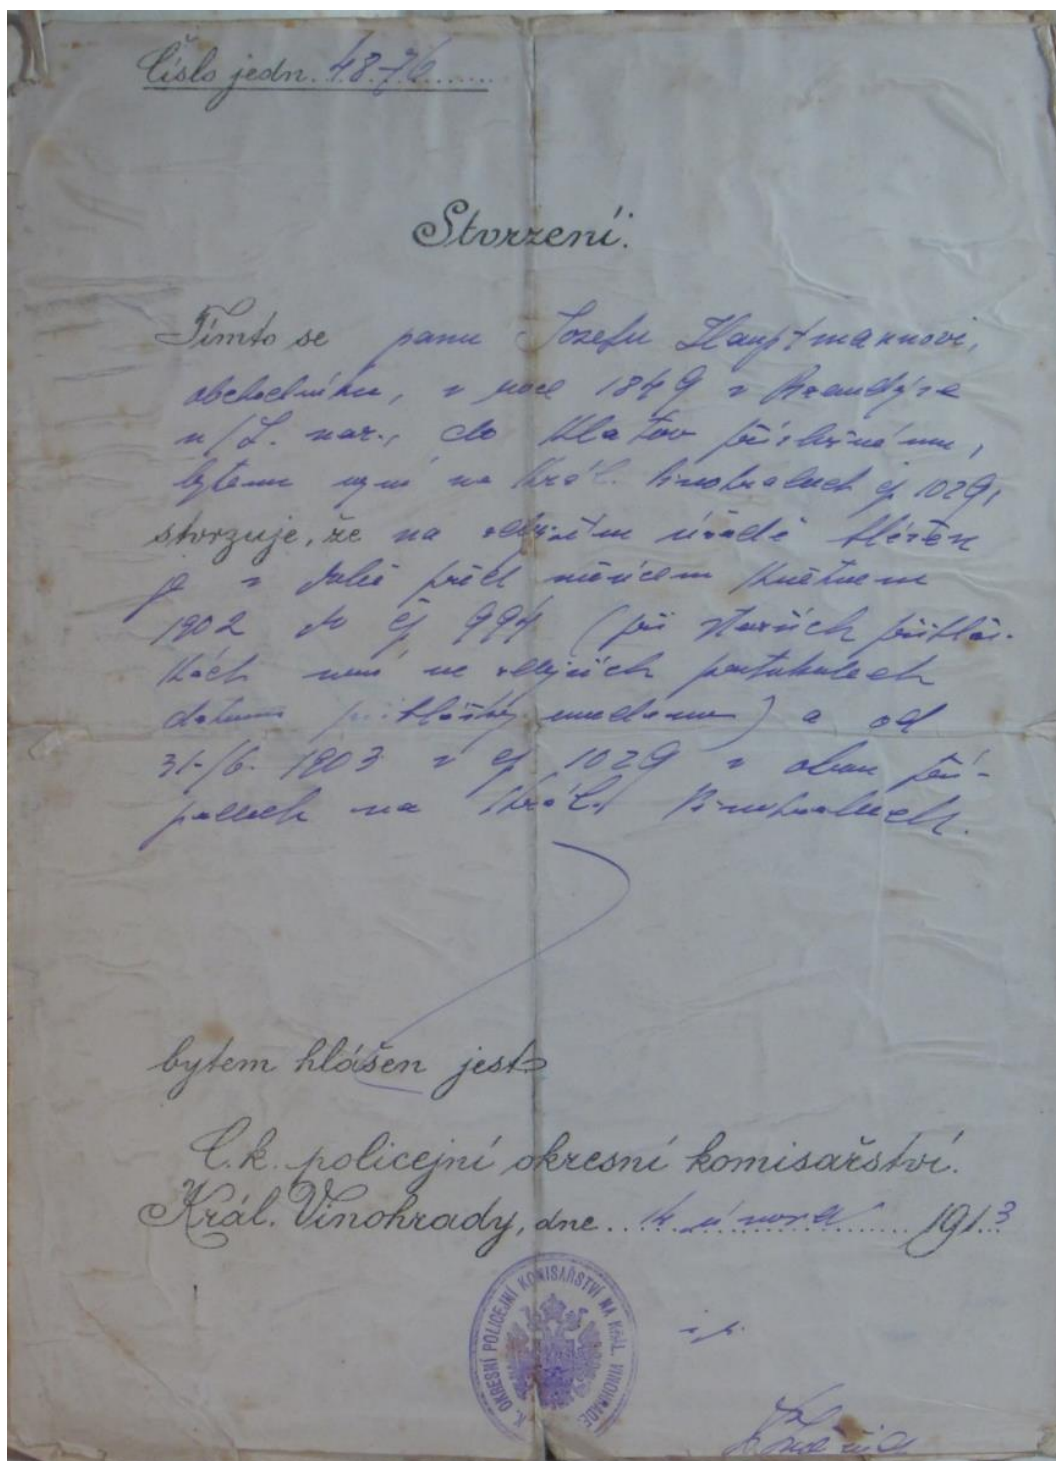 Číslo jedn. 4876
Stvrzení.
Tímto se panu Josefu Hauptmannovi,
obchodníku, v roce 1849 v Brandýse
n/L. nar., do Klatov příslušnému,
bytem nyní na Král. Vinohradech čp 1029,
stvrzuje, že na zdejším úřadě hlášen
je v době před měsícem květnem
1902 do čp 994 (při starších přihláš-
kách není ve zdejších protokolech
datum přihlášky uvedeno) a od
31./6. 1903 v čp 1029 v obou pří-
padech na Král. Vinohradech.
bytem hlášen jest
C.k. policejní okresní komisařství.
Král. Vinohrady, dne 14. února 1913
K. OKRESNÍ POLICEJNÍ KOMISAŘSTVÍ NA KRÁL. VINOHRADE